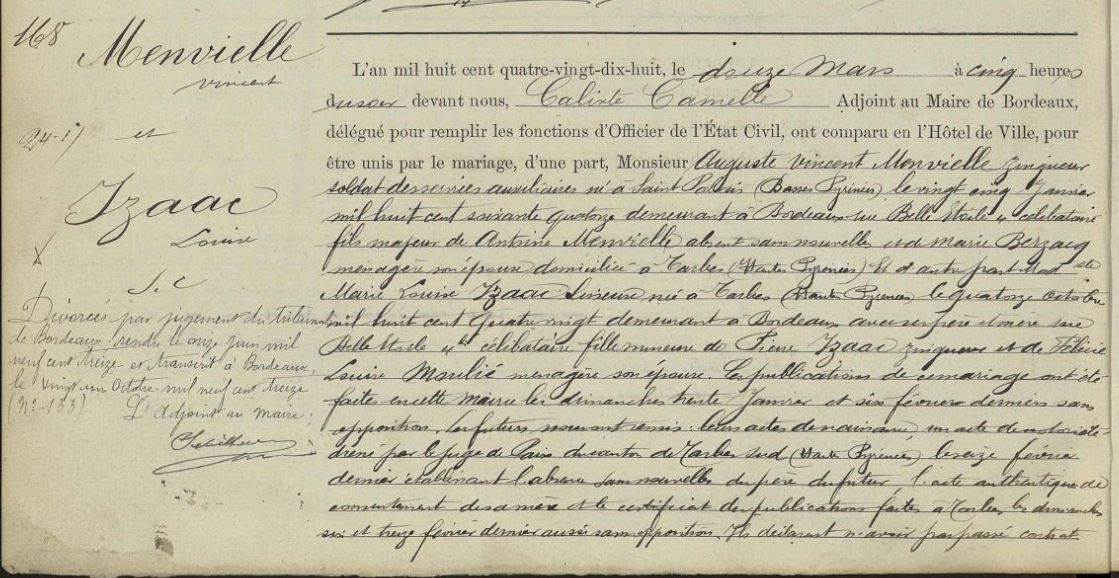 168
Menvielle
Vincent
24-17 et
Izaac
Louise
S.C
Divorcés par jugement du tribunal
de Bordeaux rendu le onze juin mil
neuf cent treize et transcrit à Bordeaux,
le vingt un Octobre mil neuf cent treize
(N° 133). L'Adjoint au Maire.
L'an mil huit cent quatre-vingt-dix-huit, le douze Mars à cinq heures
du soir devant nous, Calixte Camelle Adjoint au Maire de Bordeaux,
délégué pour remplir les fonctions d'Officier de l'État Civil, ont comparu en l'Hôtel de Ville, pour
être unis par le mariage, d'une part, Monsieur Auguste Vincent Menvielle zingueur
soldat des services auxiliaires né à Saint Palais (Basses Pyrénées) le vingt cinq Janvier
mil huit cent soixante quatorze demeurant à Bordeaux rue Belle Etoile 4 célibataire
fils majeur de Antoine Menvielle absent sans nouvelles et de Marie Berzacq
ménagère son épouse domiciliée à Tarbes (Hautes Pyrénées) Et d'autre part Mad elle
Marie Louise Izaac Liseuse née à Tarbes (Hautes Pyrénées) le quatorze Octobre
mil huit cent quatre vingt demeurant à Bordeaux avec ses père et mère rue
Belle Etoile 4 célibataire fille mineure de Pierre Izaac zingueur et de Félicie
Louise ménagère son épouse. Les publications de ce mariage ont été
faites en cette Mairie les dimanches trente Janvier et six février derniers sans
opposition. Les futurs nous ont remis : leurs actes de naissance un acte de notoriété
dréssé par le Juge de Paix du canton de Tarbes sud (Hautes Pyrénées) le seize février
dernier établissant l'absence sans nouvelles du père du futur l'acte authentique de
consentement de sa mère et le certificat des publications faites à Tarbes les dimanches
six et treize février dernier aussi sans opposition. Ils déclarent n'avoir pas passé contrat.